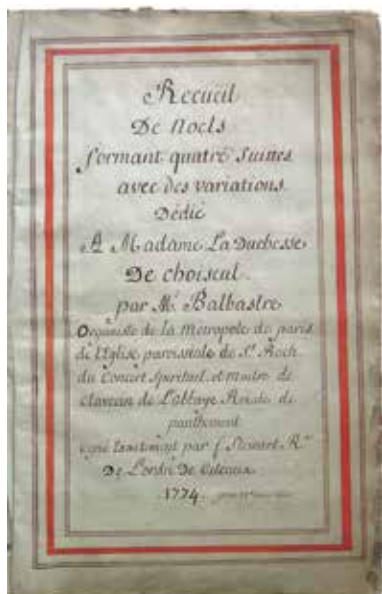 Recueil
De Noels
formant quatre Suittes
avec des variations
Dédié
A Madame La Duchesse
De choiseul.
par Mr. Balbastre
Organiste de la Metropole de paris
de l'Eglise paroissiale de St. Roch
du Concert Spirituel, et maitre de
clavecin de L'abbaye Roiale de
panthemont
copié par f.
De L'ordre De Citeaux
1774.